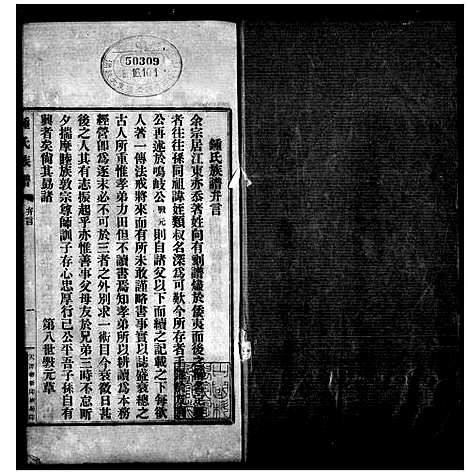 50309
16.10.1
鍾氏族譜弁言
余宗居江東亦忝著姓向有剗譜燬於倭夷而後之
者往往孫同祖諱姪類叔名深爲可歎今所存者
公再遂於鳴岐公戰元則自諸父以下而續之記載之下每欲
人著一傳法戒將來而有所未敢謹略書事實以誌盛衰總之
古人所重惟孝弟力田但不讀書焉知孝弟所以耕讀爲本務
經營即爲逐末必不可於三者之外別求一術目今衰微日甚
後之人其有志振起乎亦惟善事父母友於兄弟三時不怠斯
夕揣摩睦族敦宗尊師訓子存心忠厚行己公平吾子孫自有
興者矣尙其勗諸
第八世戰元草
氏族譜
弁言
一